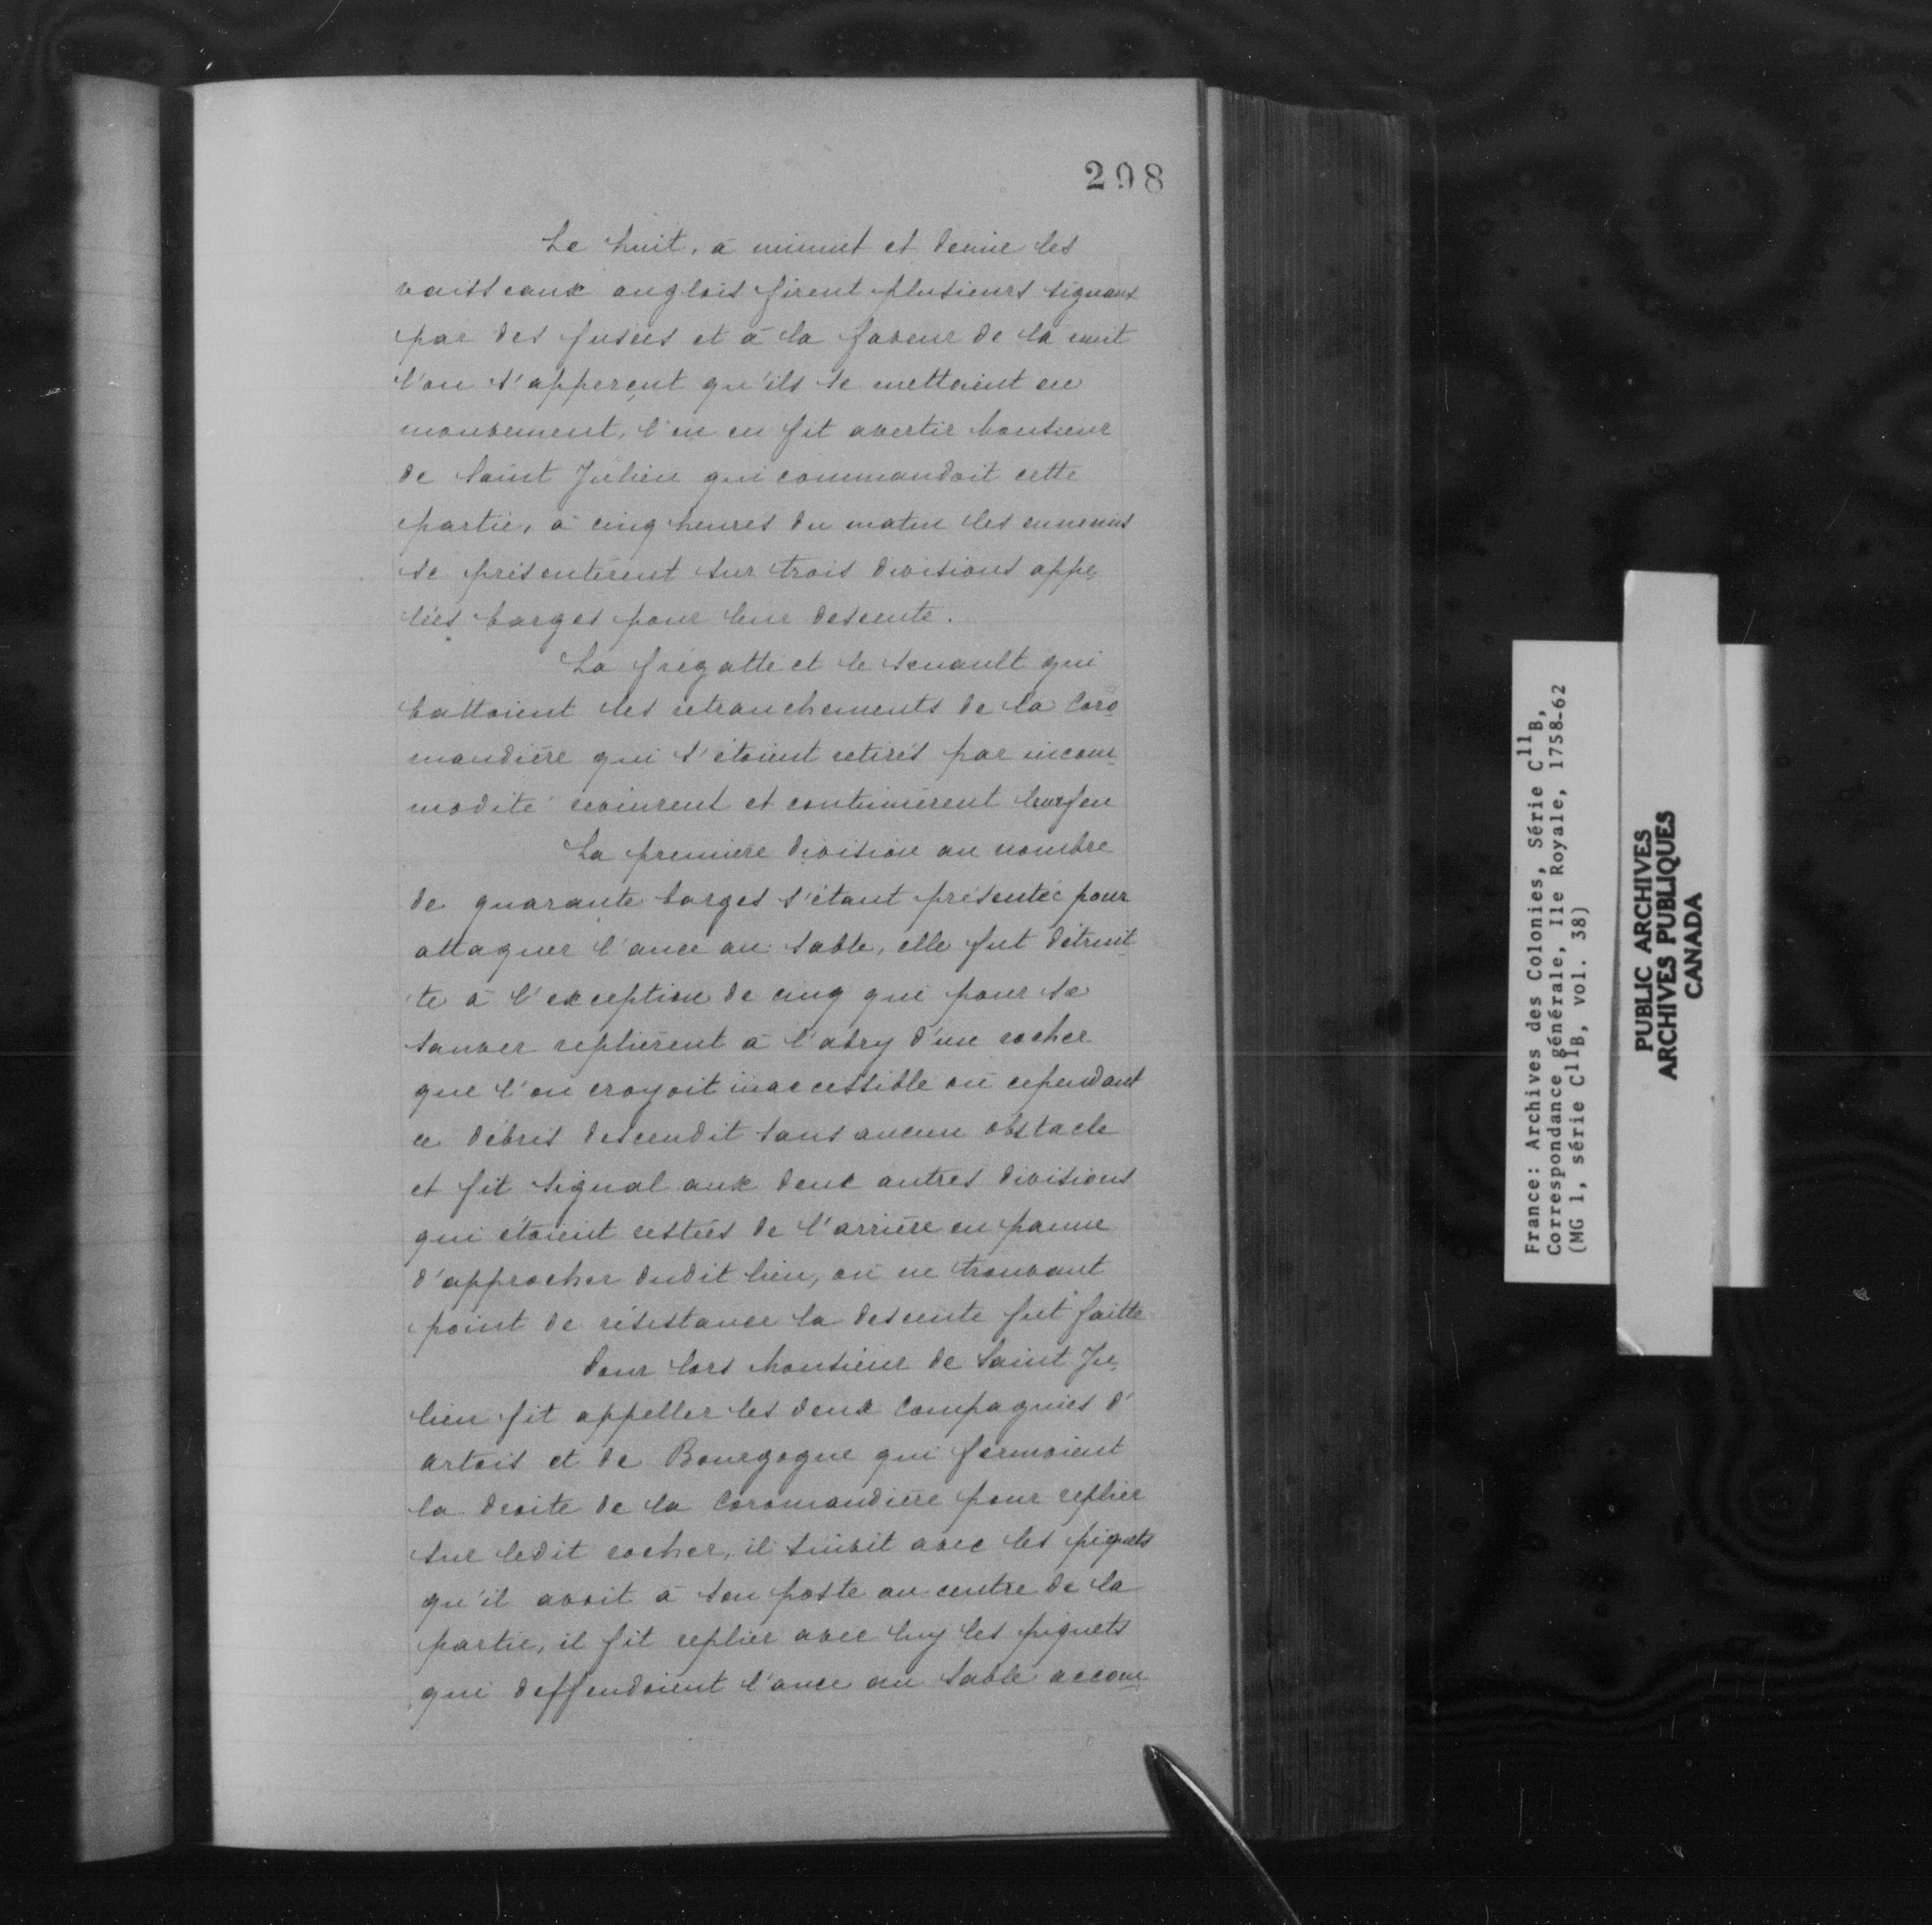 298
Le huit, à minuit et demie les
vaisseaux anglois firent plusieurs signaux
par des fusées et à la faveur de la nuit
l'on s'apperçut qu'ils se mettoient en
mouvement, l'on en fit avertir Monsieur
de Saint Julien qui commandoit cette
partie, à cinq heures du matin les ennemis
se présentèrent sur trois divisions appe
lées barges pour leur descente.
La frégatte et le senault qui
battoient les retranchements de la Coro
mandière qui s'étoient retirés par incom
modité revinrent et continuèrent leur feu
La première division au nombre
de quarante barges s'étant présentée pour
attaquer l'ance au sable, elle fut détrui
te à l'exception de cinq qui pour se
sauver replièrent à l'abry d'un rocher
que l'on croyoit inaccessible où cependant
ce débris descendit sans aucun obstacle
et fit signal aux deux autres divisions
qui étoient restées de l'arrière en panne
d'approcher dudit lieu, où ne trouvant
point de résistance la descente fut faitte
Pour lors Monsieur de Saint Ju
lien fit appeller les deux Compagnies d'
artois et de Bourgogne qui formoient
la droite de la Coromandière pour replier
sur ledit rocher, il suivit avec les piquets
qu'il avoit à son poste au centre de la
partie, il fit replier avec luy les piquets
qui deffendoient l'ance au sable accom
France: Archives des Colonies, Série C11B,
Correspondance générale, Ile Royale, 1758-62
(MG 1, série C11B, vol. 38)
PUBLIC ARCHIVES
ARCHIVES PUBLIQUES
CANADA